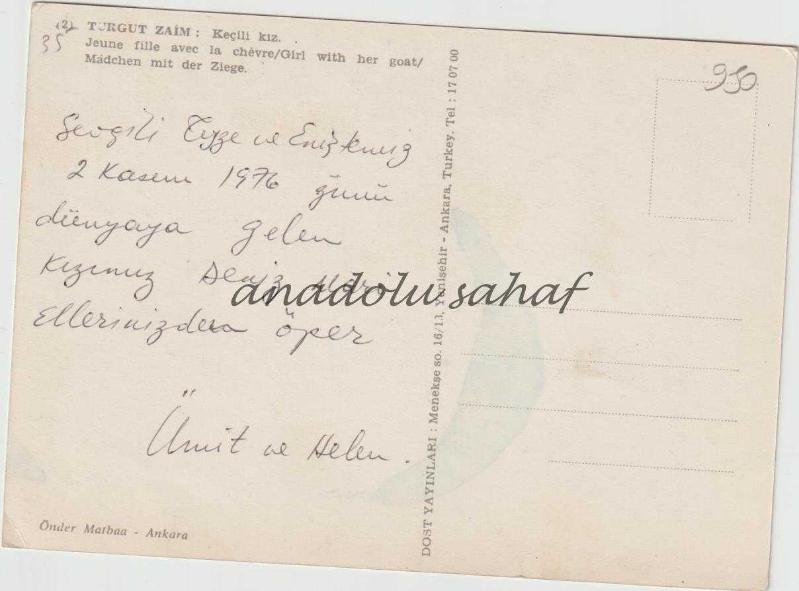 (2) TURGUT ZAİM : Keçili kız.
Jeune fille avec la chèvre/Girl with her goat/
Mädchen mit der Ziege.
35
950
Sevgili Teyze ve Enişkemiz
2 Kasım 1976 günü
dünyaya gelen
Kızımız Deniz
Ellerinizden öper
Ümit ve Helen.
anadolu sahaf
Önder Matbaa - Ankara
DOST YAYINLARI : Menekşe so. 16/13, Yenişehir - Ankara, Turkey. Tel : 17 07 00